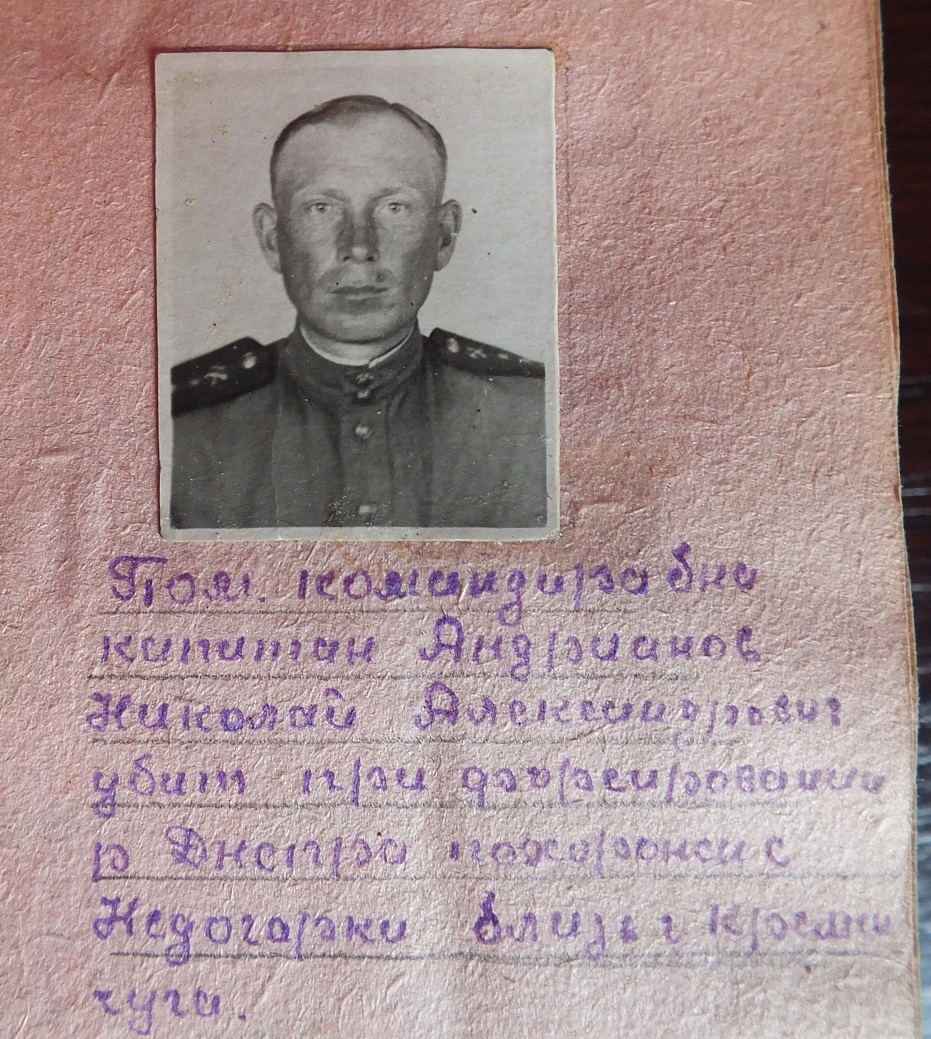 Пом. командира бна
капитан Андрианов
Николай Александрович
убит при форсировании
р Днепра похоронен с
Недогарки вблизи г Кремен
чуга.